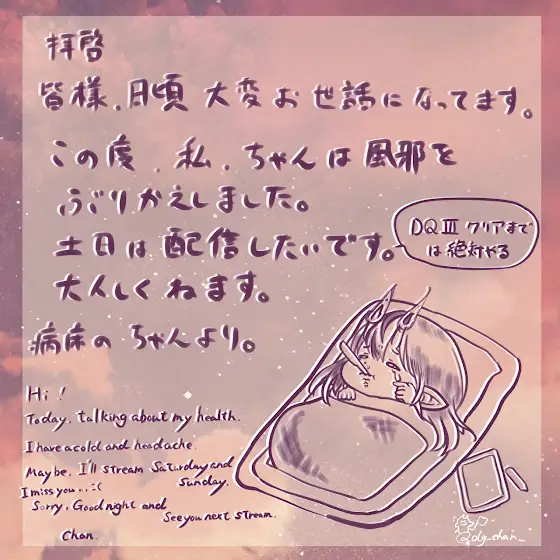 拝啓
皆様、日頃大変お世話になってます。
この度、私、ちゃんは風邪を
ぶりかえしました。
土日は配信したいです。
DQⅢクリアまで
は絶対やる
大人しくねます。
病床のちゃんより。
Hi!
Today, talking about my health.
I have a cold and headache.
Maybe, I'll stream Saturday and
Sunday.
I miss you...:(
Sorry, Good night and
See you next stream.
Chan.